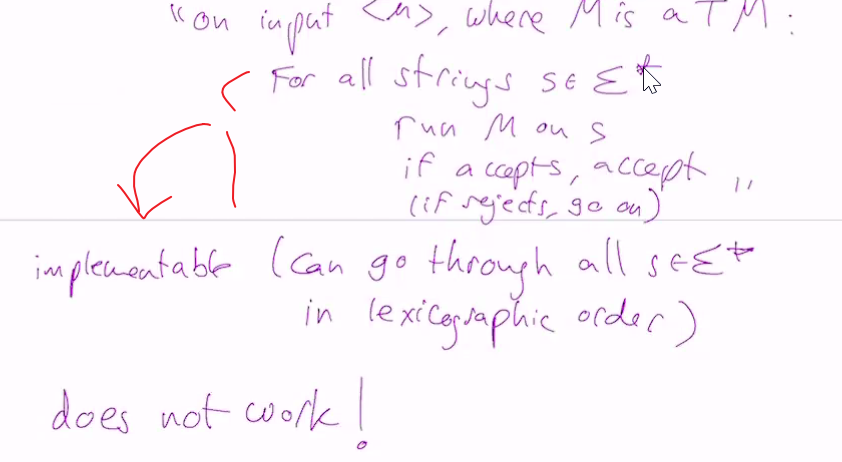 "on input <M>, where M is a TM:
For all strings s ∈ Σ*
run M on s
if accepts, accept "
(if rejects, go on)
implementable (can go through all s ∈ Σ*
in lexicographic order)
does not work!